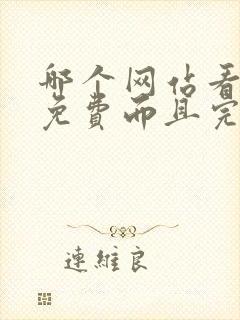 哪个网站看
免费而且完
連維良